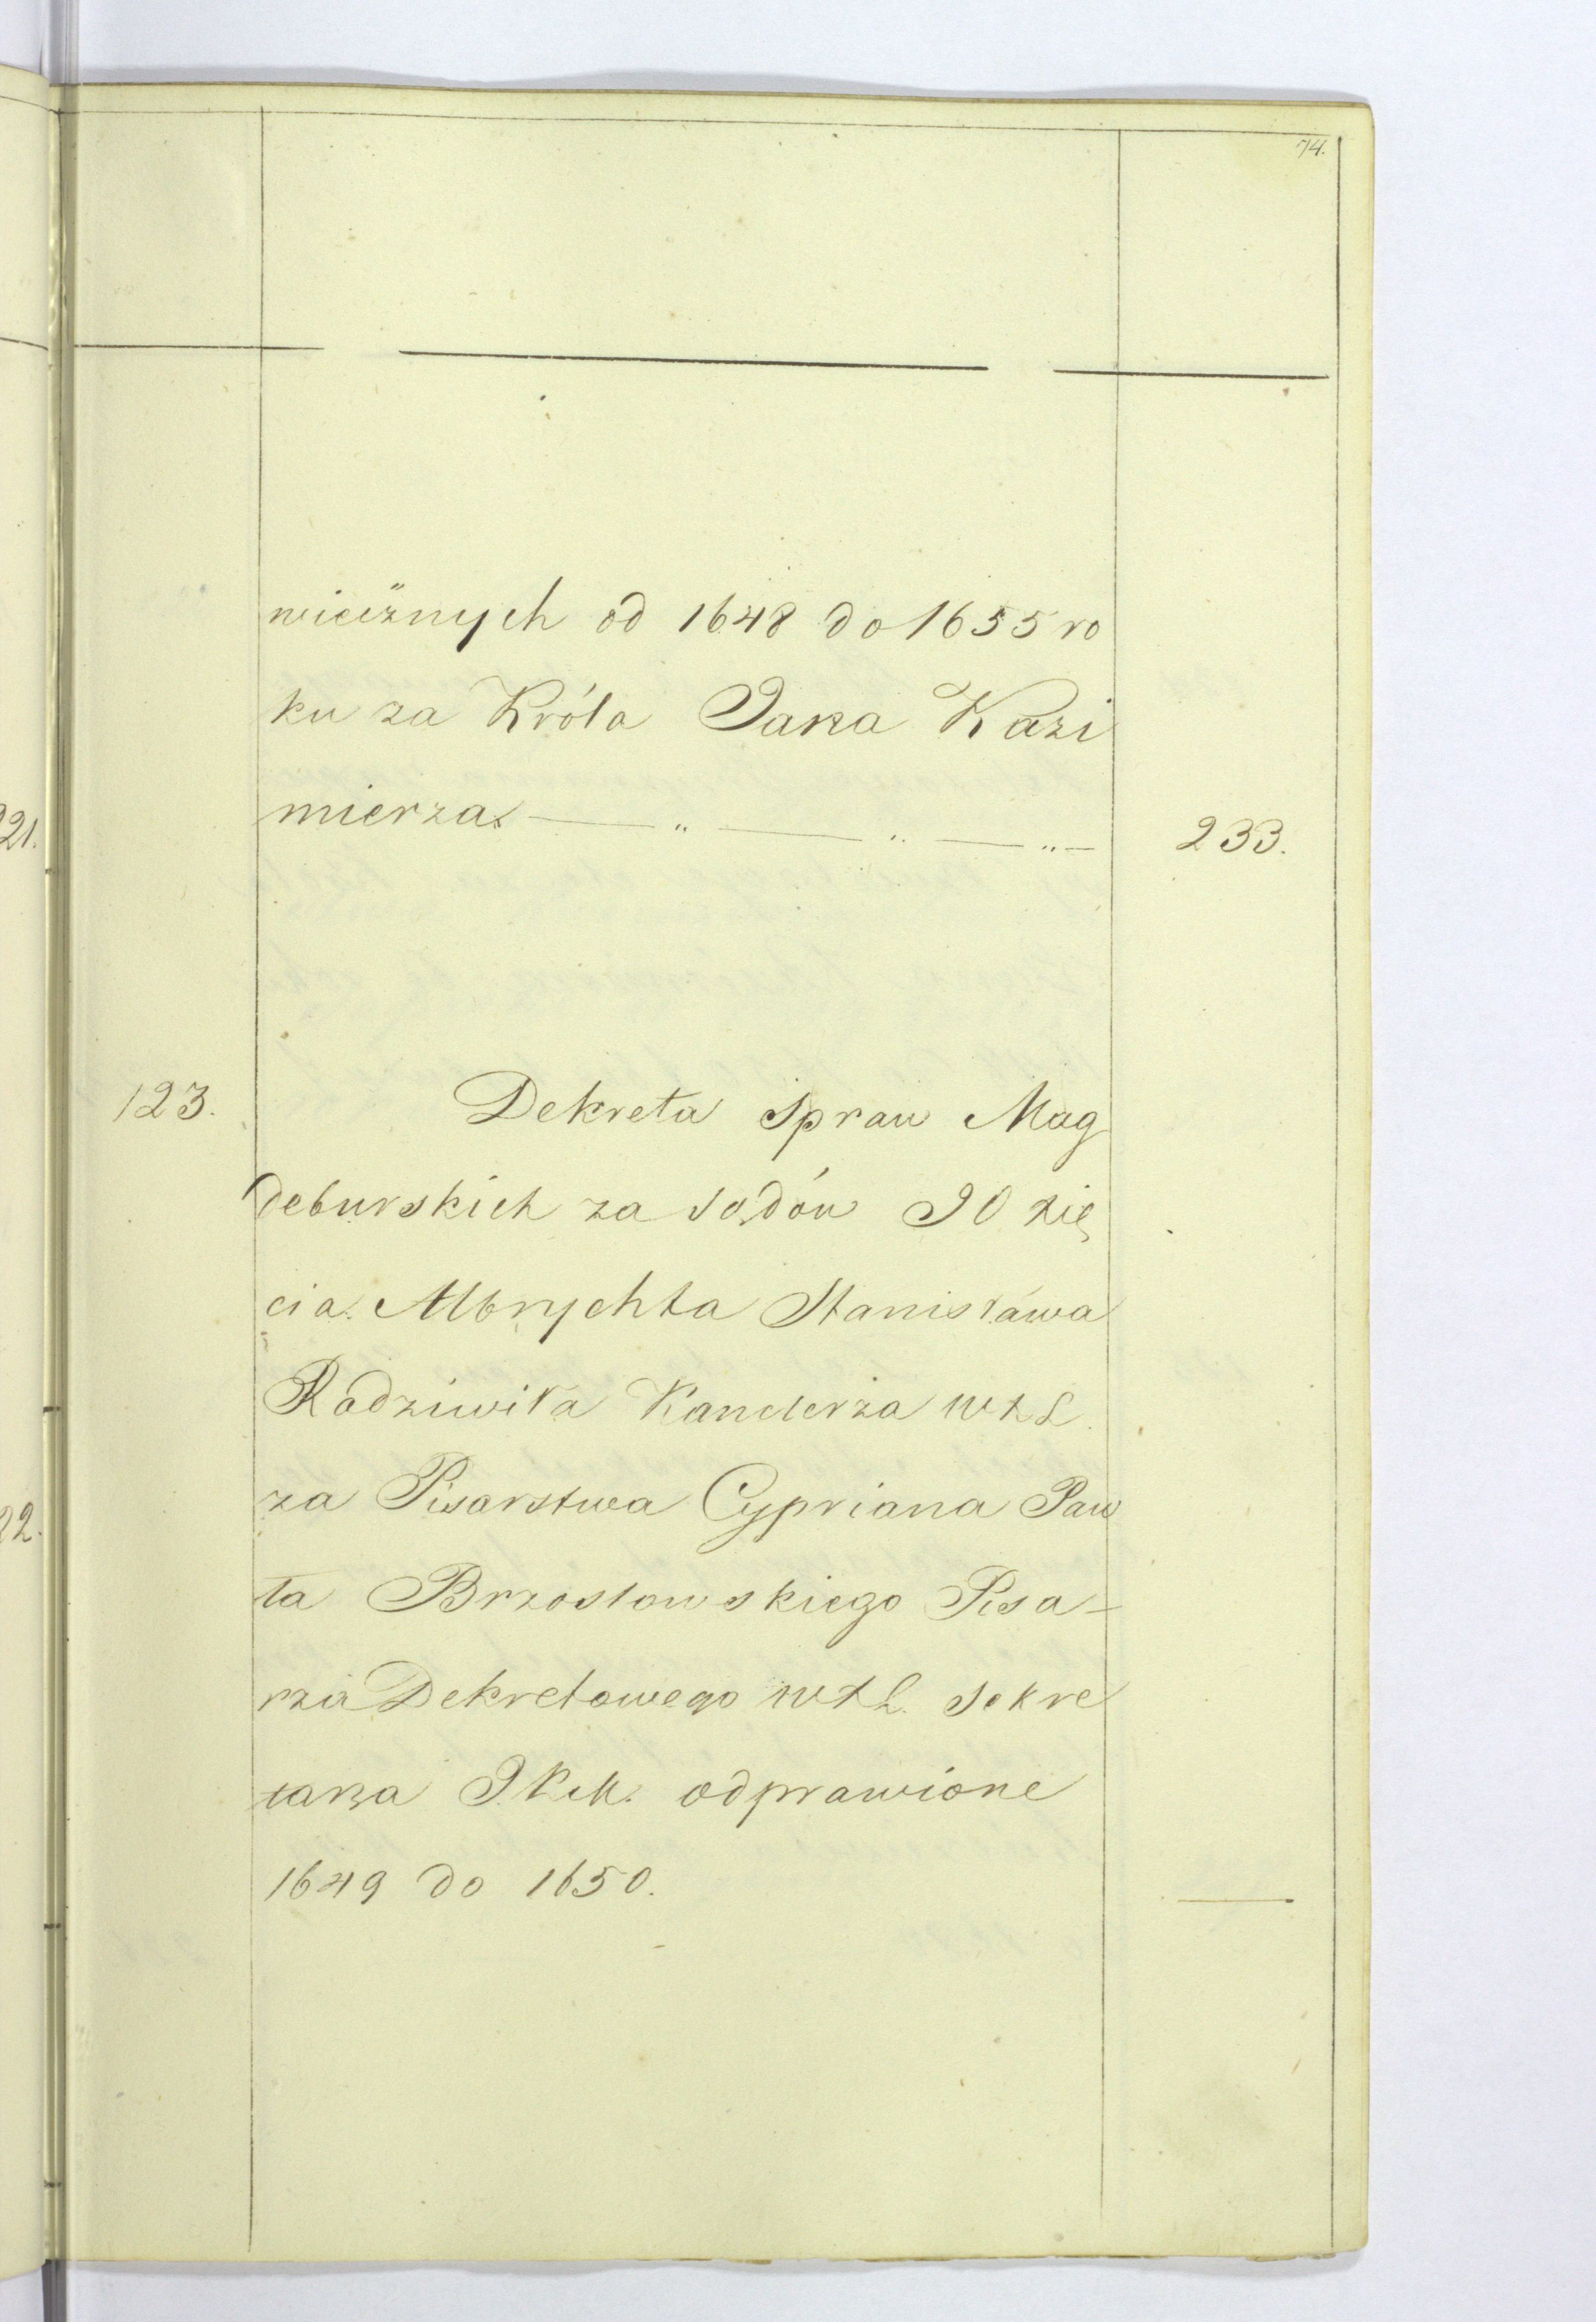 74.
wiecżnych od 1648 do 1655 ro
ku za Króla Jana Kazi
mierza. — „ — „ — „ — 233.
21.
123. Dekreta Spraw Mag
deburskich za sądów JO Xię
cia. Albrychta Stanisława
Radziwiła Kanclerza WXL.
za Pisarstwa Cypriana Paw
22.
ła Brzostowskiego Pisa-
rza Dekretowego WXL. Sekre
tarza J.K.M. odprawione
1649 do 1650. —